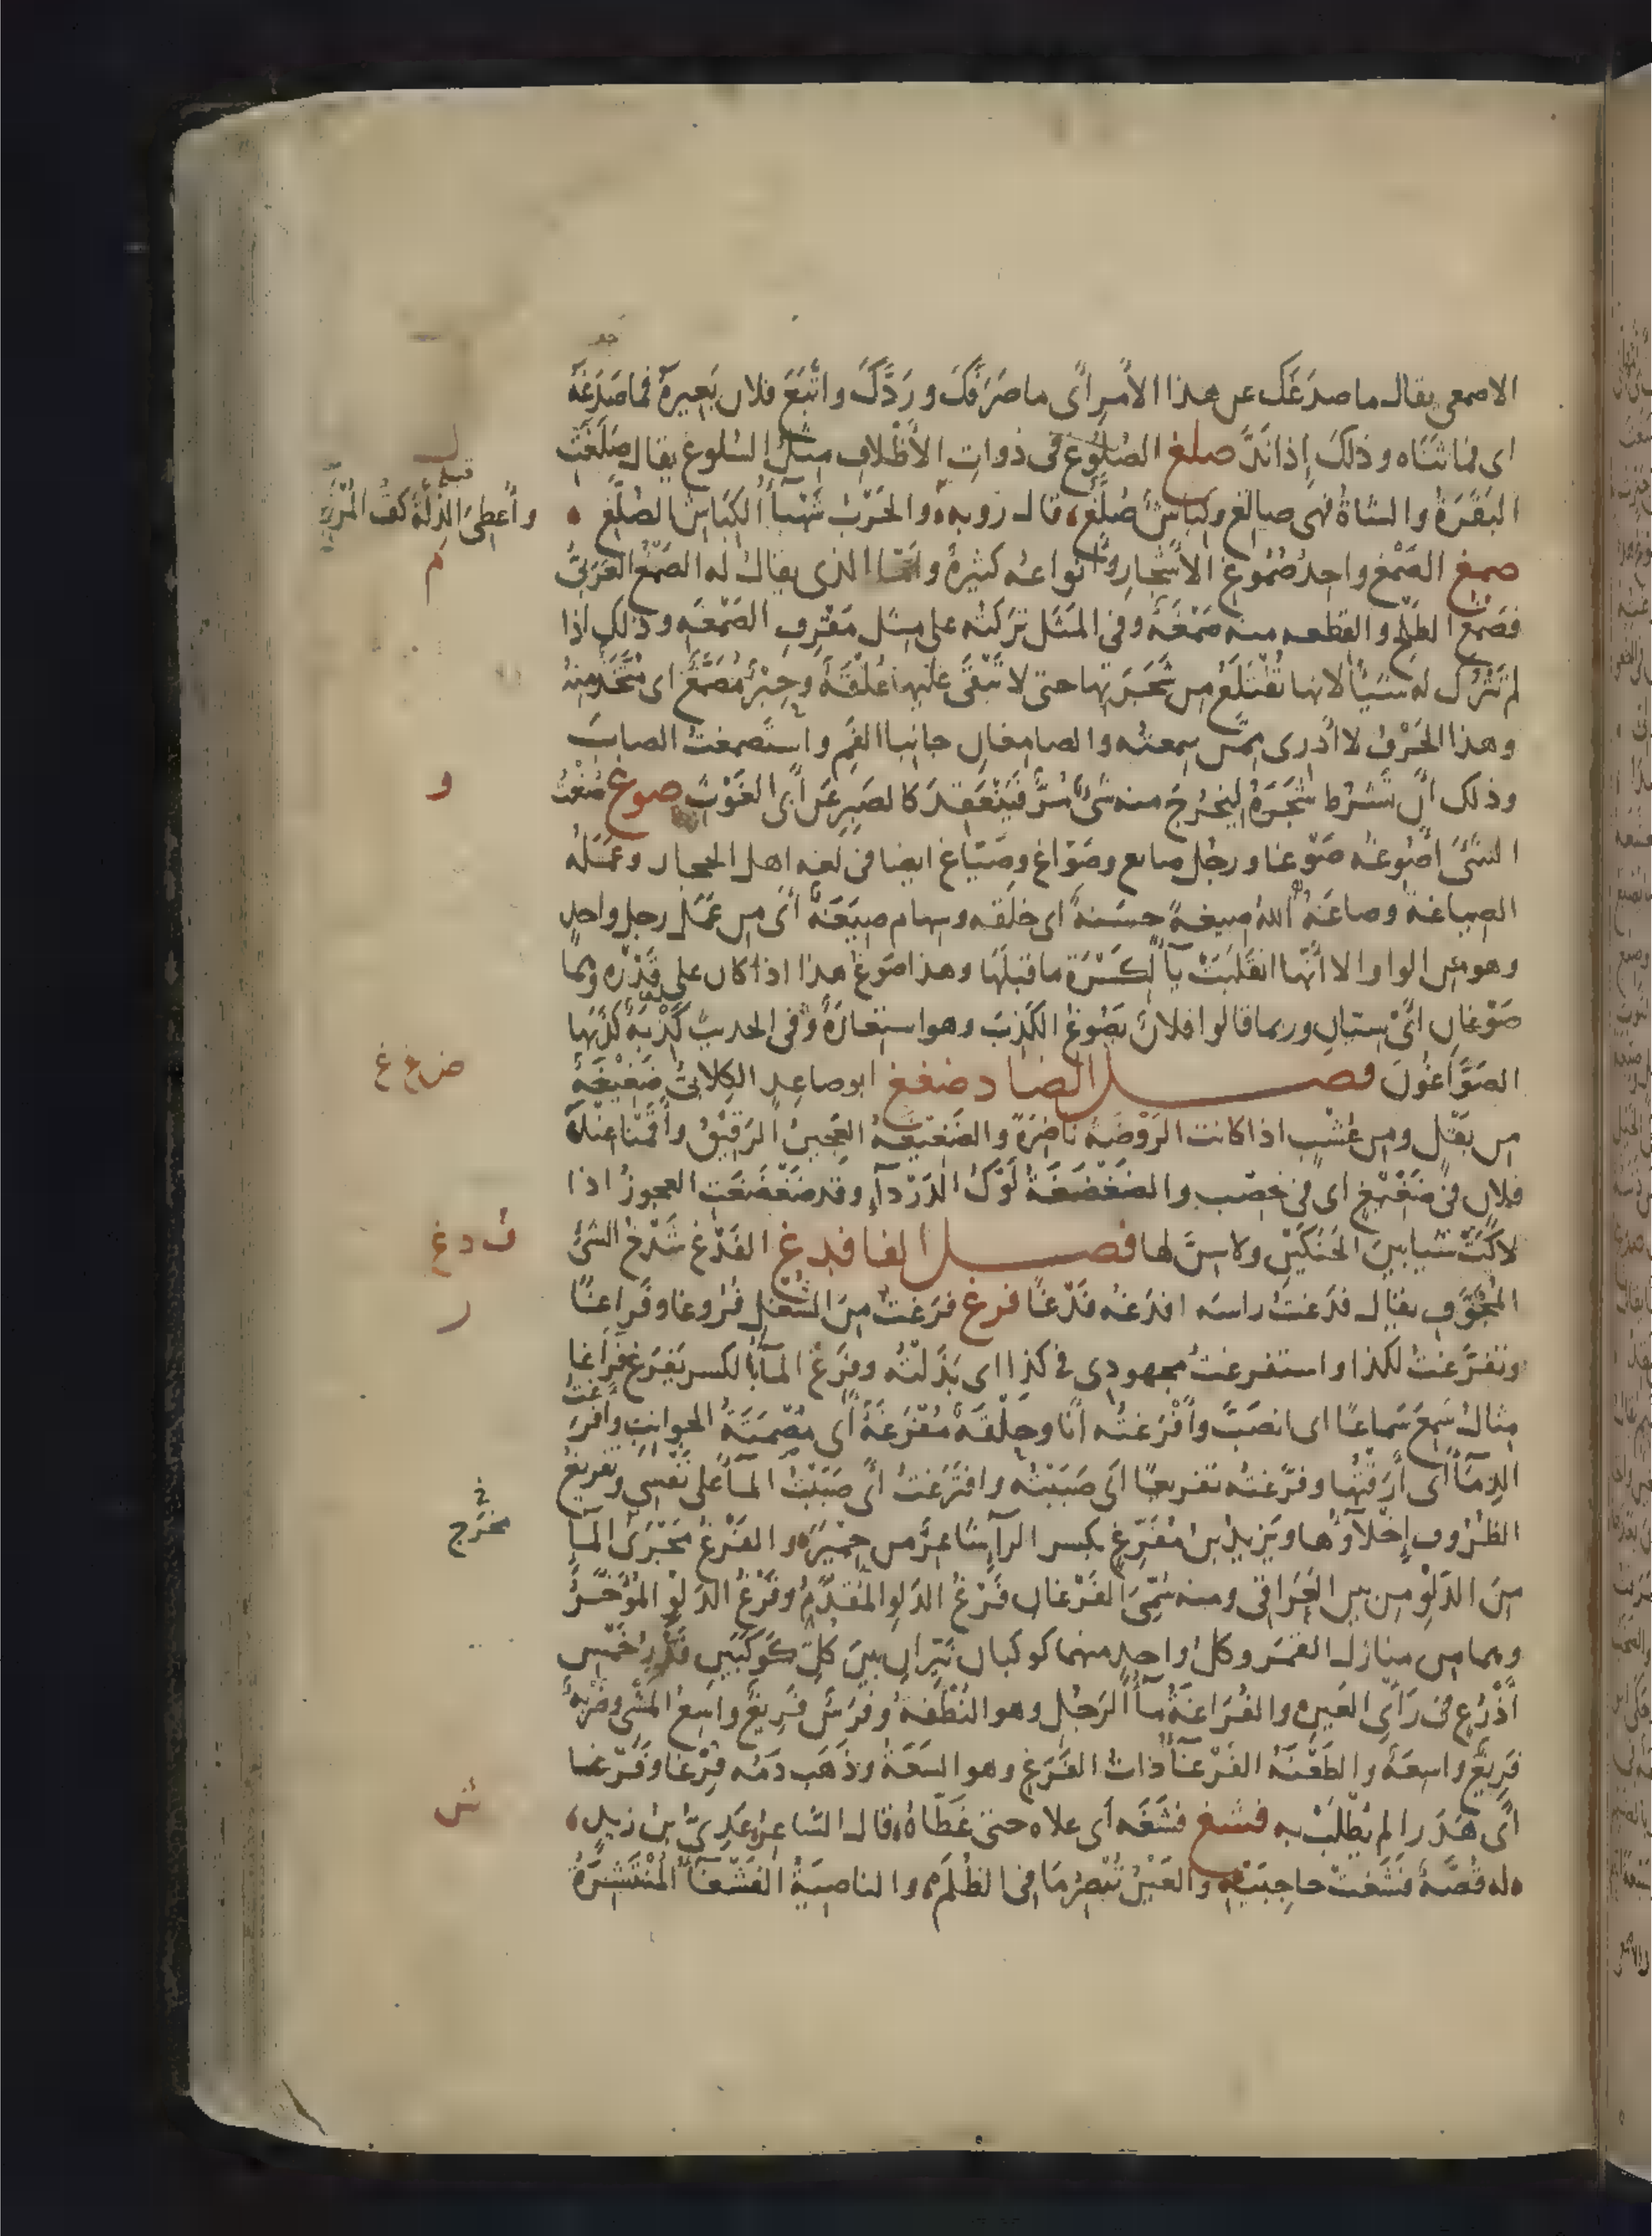 الاصمعي يقال ما صدَغَكَ عن هذا الأمرِ أي ما صَرَفَكَ وردَّكَ واتَّبَعَ فلان بَعِيرهُ فما صَدَغَهُ
اى فما ثَنَاه وذلك إذا نَدَّ صلغ الصُلُوغ فى ذواتِ الأظْلافِ مِثلُ السُلوغ يقال صَلَغَتِ
البَقَرَةُ والشاةُ فهى صالِغ وكِبَاشٌ صُلَّغٌ، قال رُوبه، والحَرْبُ شَهْبآُ الكِبَاشِ الصُلَّغِ
صمغ الصَمْغ واحِدُ صُمُوغِ الأَشْجارِ وأنواعه كثيرةٌ وأمّا الذى يقالُ لَه الصَمْغُ العَرَبىُّ
فصَمْغ الطَلْح والقطعه منه صَمْغَةٌ وفى المَثَل تركتُه على مِثْلِ مَقْرِفِ الصَمْغَهِ وذلك اذا
لم تَتْرُك له شيئاً لانها تُقْتَلَعُ من شَجَرَتِها حتى لا تَبْقَى عليها عُلْقَةٌ وحِبْرٌ مُصَمَّغٌ اى مُتَّخَذٌ مِنهُ
وهذا الحَرْفُ لا أدرى ممَّن سمعتُه والصامِغانِ جانِبا الفَمِ واستَصْمَغتُ الصابَ
وذلك أن تَشْرُط شَجَرَهُ ليَخرُجَ منه شىٌ مُرٌّ فيَنْعَقِدَ كالصَبِرِ عن أبى الغَوْث صوغ صُغْتُ
الشىَ أصُوغه صَوْغا ورجُل صايغ وصَوّاغ وصَيّاغ ايضا فى لغه اهل الحجاز وعَمَلُه
الصِياغة وصاغَهُ اللهُ صِيغةً حسَنةً اى خلقه وسِهام صِيغَةٌ أى من عَمَل رجلٍ واحدٍ
وهو من الواو إلا أنّها انقَلَبَتْ يآً لكَسْرَةِ ما قبلَها وهذا صَوغُ هذا اذا كان على قَدْرِه وهما
صَوْغانِ اىْ سِيّانِ وربما قالوا فلانٌ يَصُوغُ الكَذِبَ وهو استعارَةٌ وفى الحديث كِذْبَهٌ كذَبَها
الصَوَّاغُونَ فصل الضاد ضغغ ابو صاعِدٍ الكِلابىُّ ضَغِيغَةٌ
من بَقْلٍ ومن عُشْبٍ اذا كانت الرَوْضَهُ ناضِرَةً والضَغِيغَهُ العَجينُ الرَقِيقُ وأقَمْنا عند
فلان فى ضَغِيغٍ اى فى خِصْبٍ والضَغْضَغَةُ لَوْكُ الدَرْدآءِ وقد ضَغْضَغَتِ العجوزُ اذا
لاكَتْ شيا بينَ الحَنَكَيْنِ ولا سِنَّ لها فصل الفا فدغ الفَدْغ شَدْخُ الشىْ
المُجَوَّفِ يقال فدَغتُ راسَه افدَغه فَدْغًا فرغ فرَغتُ مِنَ الشُغلِ فُرُوغا وفَراغًا
وتفرَّغتُ لكذا واستفرغتُ مجهودى فى كذا اى بَذَلْتُه وفَرِغَ المآءُ بالكسر يَفرَغ فَرَاغا
مِثالُ سَمِعَ سَماعًا اى انصَبَّ وأَفْرَغتُه أنَا وحَلْقَهٌ مُفْرَغَةٌ أى مُصْمَتَةُ الجوانبِ وافرَغتُ
الدِمآَ أى أرَقْتُها وفرَّغتُه تفريغًا اى صَبَبْتُه وافْتَرَغتُ أى صَبَبْتُ المآَ على نَفْسى وتفريغُ
الظُرُوفِ إخْلاؤُها ويَزيدُ بنُ مُفَرِّغٍ بكسر الرآ شاعِرٌ من حِمْيَرَ، والفَرْغُ مَجْرَى المآ
مِنَ الدَلْوِ من بين العَرَاقى ومنه سُمّىَ الفَرْغان فَرْغُ الدَلوِ المُقَدَّمُ وفَرْغُ الدَلْوِ المُؤَخَّرُ
وهما من منازل القمَر وكل واحدٍ منهما كوكبان نَيِّرانِ بينَ كلّ كَوْكَبَينِ قَدْرُ خَمْسِ
أذْرُعٍ فى رَأىِ العَينِ، والفُرَاغَةُ مآُ الرَجُلِ وهو النُطْفهُ وفَرَسٌ فَرِيغٌ واسِعُ المَشْىِ وضَرْبَهٌ
فَرِيغٌ واسِعَهٌ والطَعْنَهُ الفَرْغآُ ذاتُ الفَرْغِ وهو السَعَةُ وذهَب دَمُه فِرْغا وفَرْغا
أى هَدَرا لم يُطْلَبْ به فشغ فشَغَه اى علاه حتى غَطّاهُ، قال الشاعِر، عَدِىُّ بنُ زيدٍ،
، له قُصّهٌ فَشَغتْ حاجِبَيْهِ والعَيْنُ تُبْصِرُ مَا فى الظُلَمِ، والناصِيَةُ الفَشْغآُ المُنْتَشِرَةُ
ل
وأَعطِىَ الذِلَّةَ كفُّ
م
و
ض غ غ
ف د غ
ر
مخرج
ش